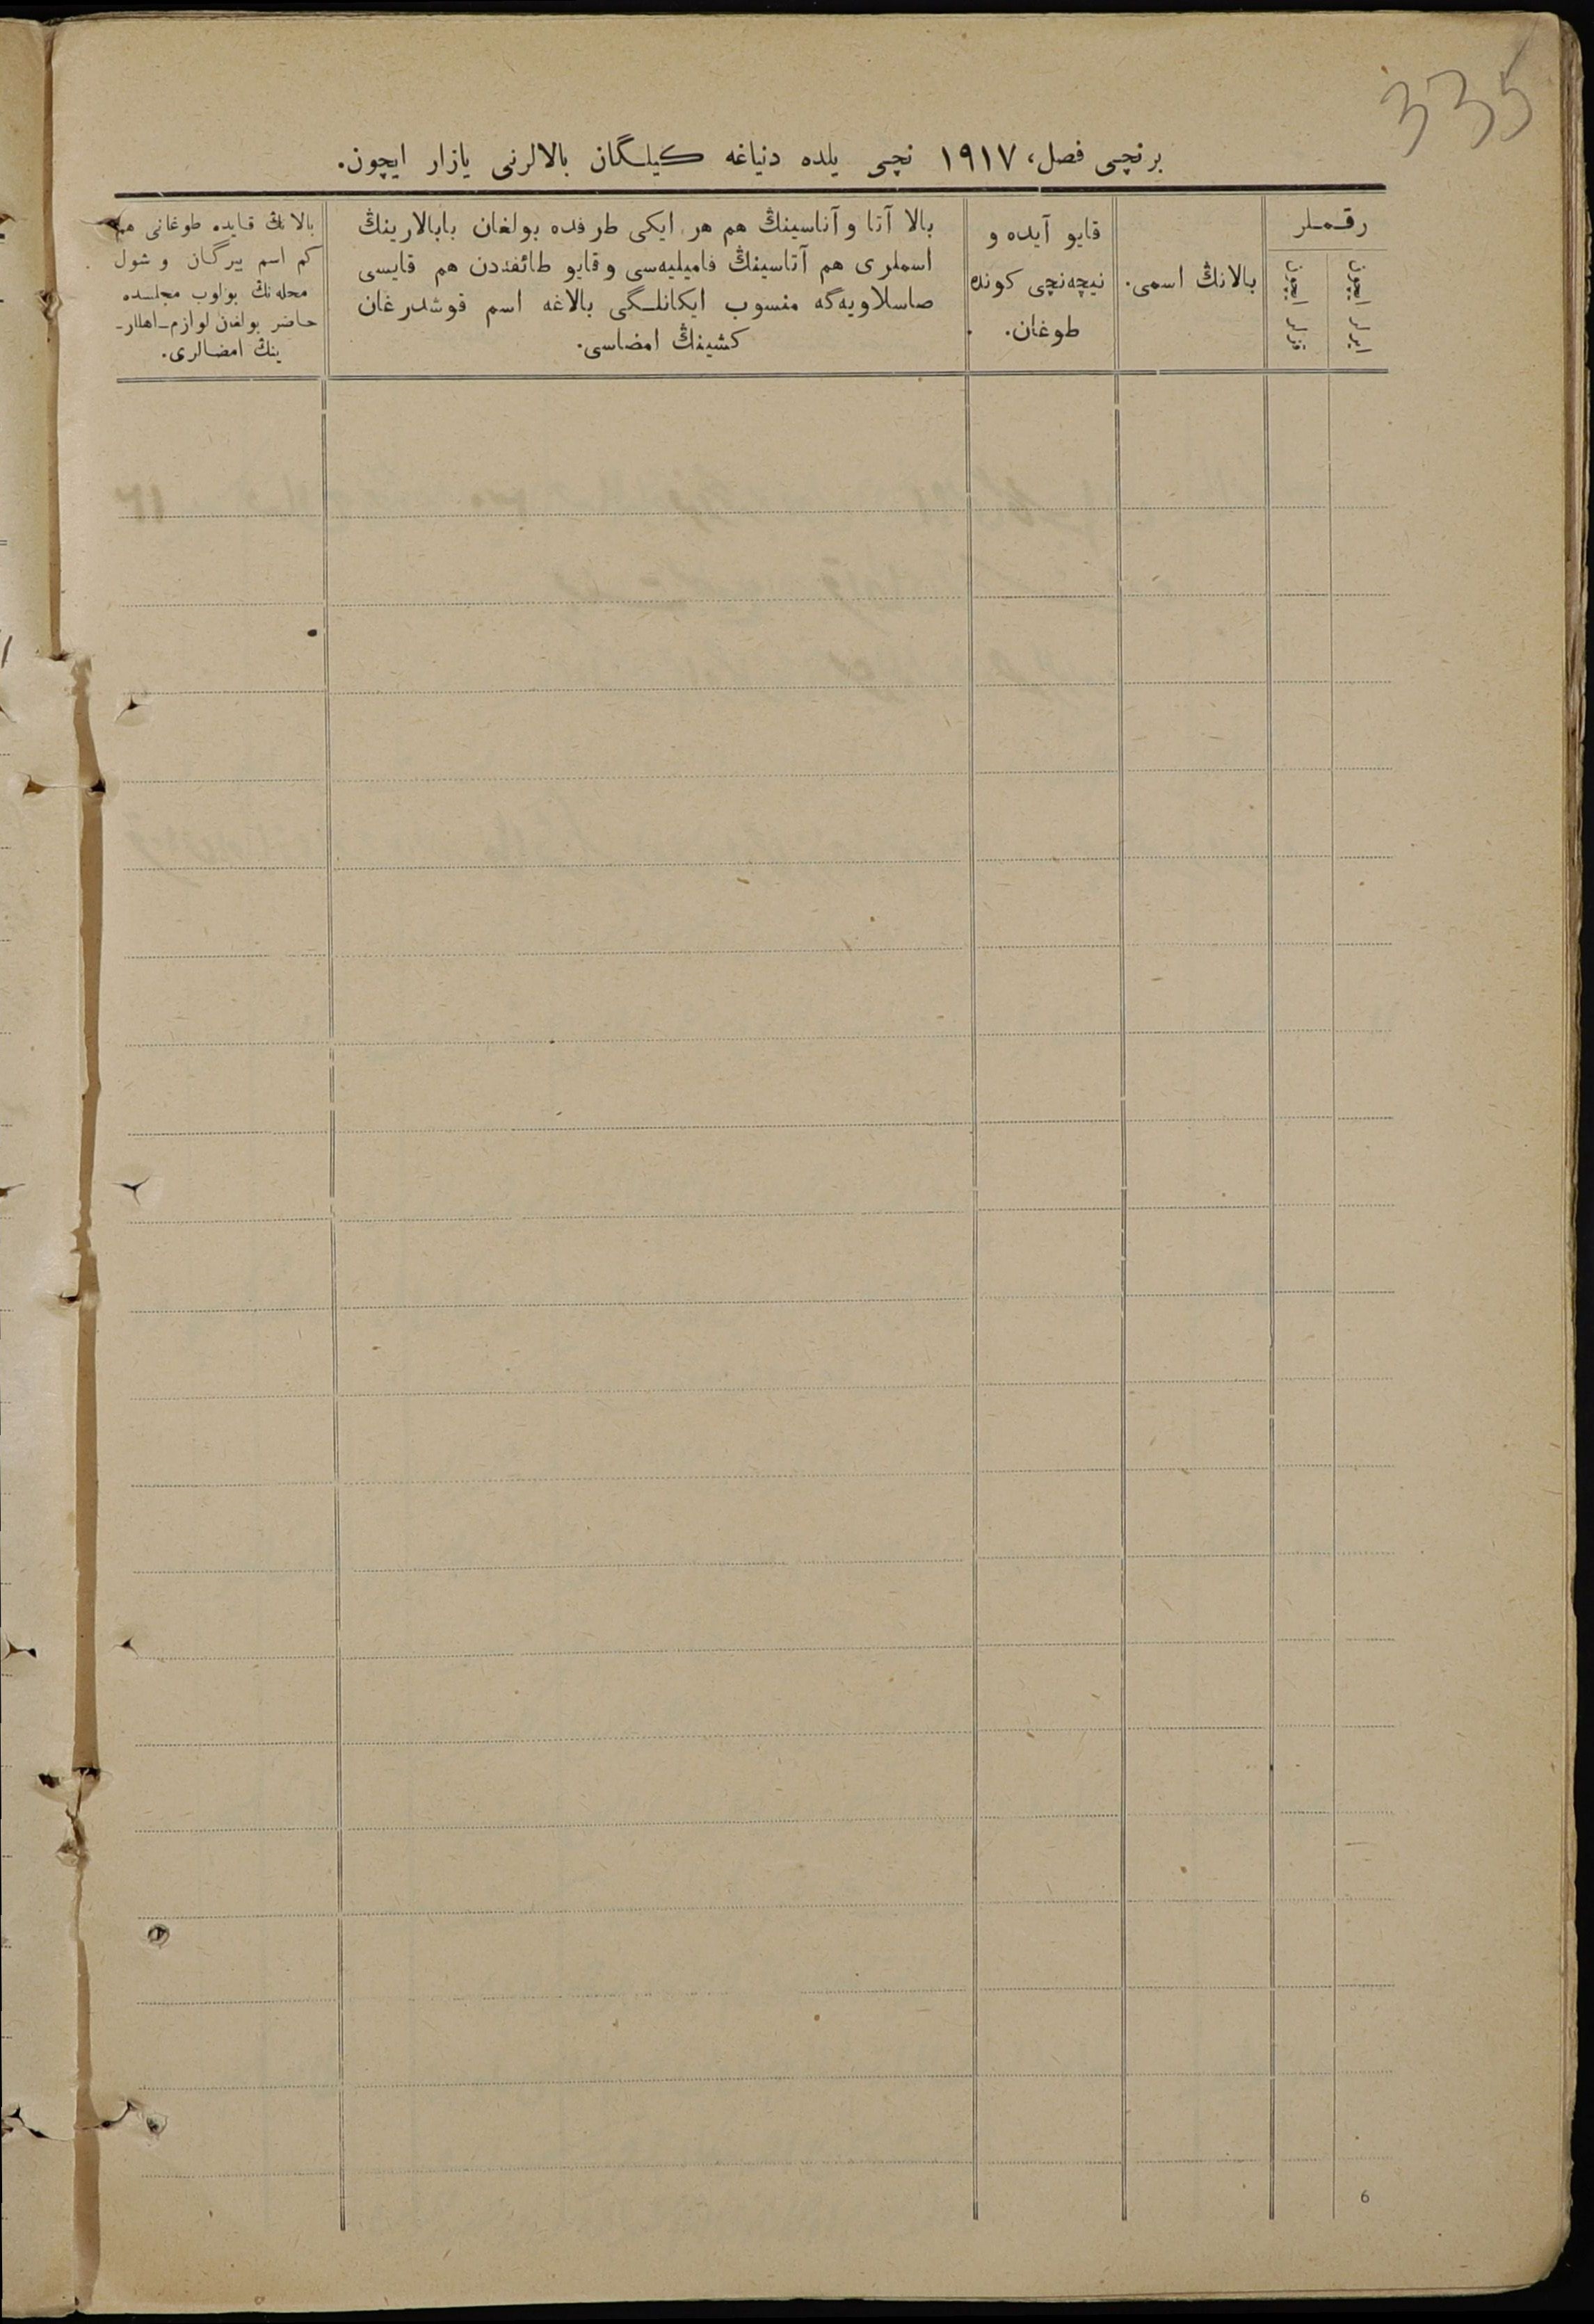 335
برنچی فصل، ١٩١٧ نچی یلده دنیاغه کیلگان بالالرنی یازار ایچون.
رقملر
ایرلر ایچون
قزلر ایچون
بالانڭ اسمی.
قایو آیده و
نیچه‌نچی کونده
طوغان.
بالا آتا و آناسینڭ هم هر ایکی طرفده بولغان بابالارینڭ
اسملری هم آتاسینڭ فامیلیه‌سی و قایو طائفه‌دن هم قایسی
صاسلاویه‌گه منسوب ایکانلگی بالاغه اسم قوشدرغان
کشینڭ امضاسی.
بالانڭ قایده طوغانی هم
کم اسم بیرگان و شول
محله‌نڭ بولوب مجلسده
حاضر بولغن لوازم-اهللر-
ینڭ امضالری.
6